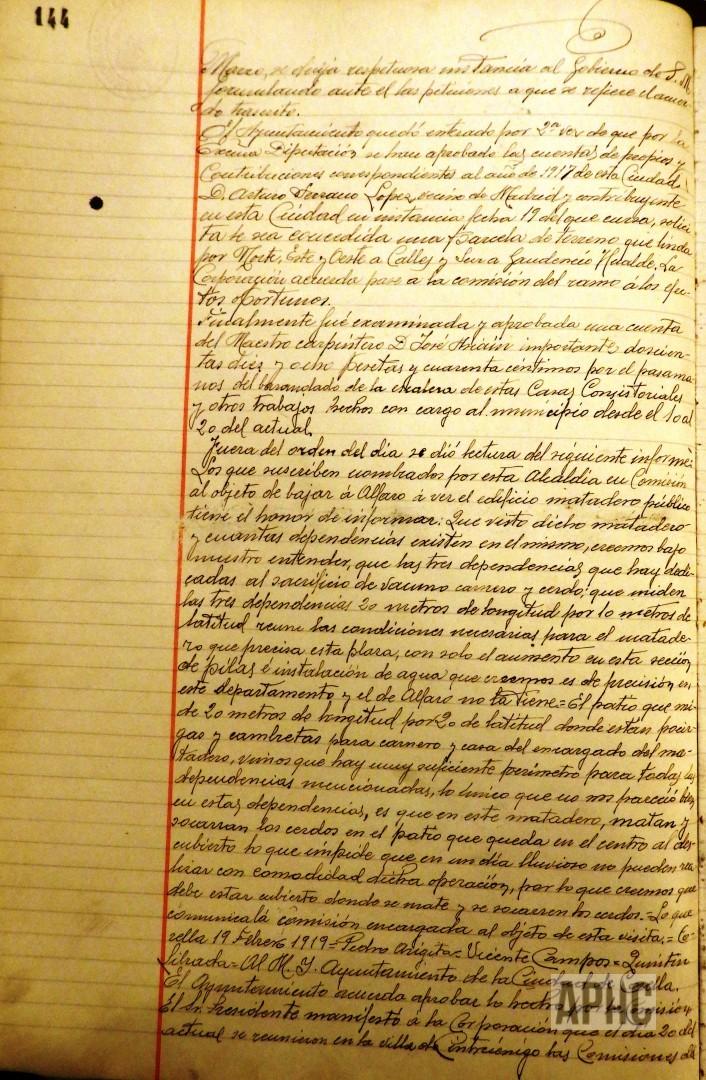 144
Marzo, se dirija respetuosa instancia al Gobierno de S. M.
formulando ante el las peticiones a que se refiere el acuer-
do transcrito.
El Ayuntamiento quedó enterado por 2ª vez de que por la
Excma Diputación se han aprobado las cuentas de propios y
Contribuciones correspondientes al año de 1917 de esta Ciudad.
D. Arturo Serrano Lopez, vecino de Madrid y contribuyente
en esta Ciudad en instancia fecha 19 del que cursa, solici-
ta le sea concedida una parcela de terreno, que linda
por Norte, Este y Oeste a Calles y Sur a Gaudencio Ytcalde. La
Corporación acuerda pase a la comisión del ramo a los efe-
tos oportunos.
Finalmente fué examinada y aprobada una cuenta
del Maestro carpintero D. José importante doscien-
tas diez y ocho pesetas y cuarenta centimos por el pasama-
nos del barandado de la escalera de estas Casas Consistoriales
y otros trabajos hechos con cargo al municipio desde el 10 al
20 del actual.
Fuera del orden del dia se dió lectura del siguiente informe:
Los que suscriben nombrados por esta Alcaldia en Comisión
al objeto de bajar á Alfaro á ver el edificio matadero público
tiene el honor de informar: Que visto dicho matadero
y cuantas dependencias existen en el mismo, creemos bajo
nuestro entender, que las tres dependencias que hay dedi-
cadas al sacrificio de vacuno carnero y cerdo; que miden
las tres dependencias 20 metros de longitud por 10 metros de
latitud reune las condiciones necesarias para el matade-
ro que precisa esta plaza, con solo el aumento en esta sección
de pilas é instalación de agua que creemos es de precisión en
este departamento y el de Alfaro no la tiene = El patio que mi-
de 20 metros de longitud por 20 de latitud donde están pocir-
gas y cambretas para carnero y casa del encargado del ma-
tadero, vimos que hay muy suficiente perímetro para todas las
dependencias mencionadas, lo único que no nos pareció bien
en estas dependencias, es que en este matadero, matan y
socarran los cerdos en el patio que queda en el centro al des-
cubierto lo que impide que en un día lluvioso no pueden rea-
lizar con comodidad dicha operación, por lo que creemos que
debe estar cubierto donde se mate y se socarren los cerdos. = Lo que
comunica la comisión encargada al objeto de esta visita. = Co-
rella 19 Febrero 1919 = Pedro Arigita = Vicente Campos = Quintin
= Al M. Y. Ayuntamiento de la Ciudad de Corella.
El Ayuntamiento acuerda aprobar lo hecho por la Comisión
El Sr. Presidente manifestó á la Corporación que el día 20 del
actual se reunieron en la villa de Cintruénigo las Comisiones de
APHC